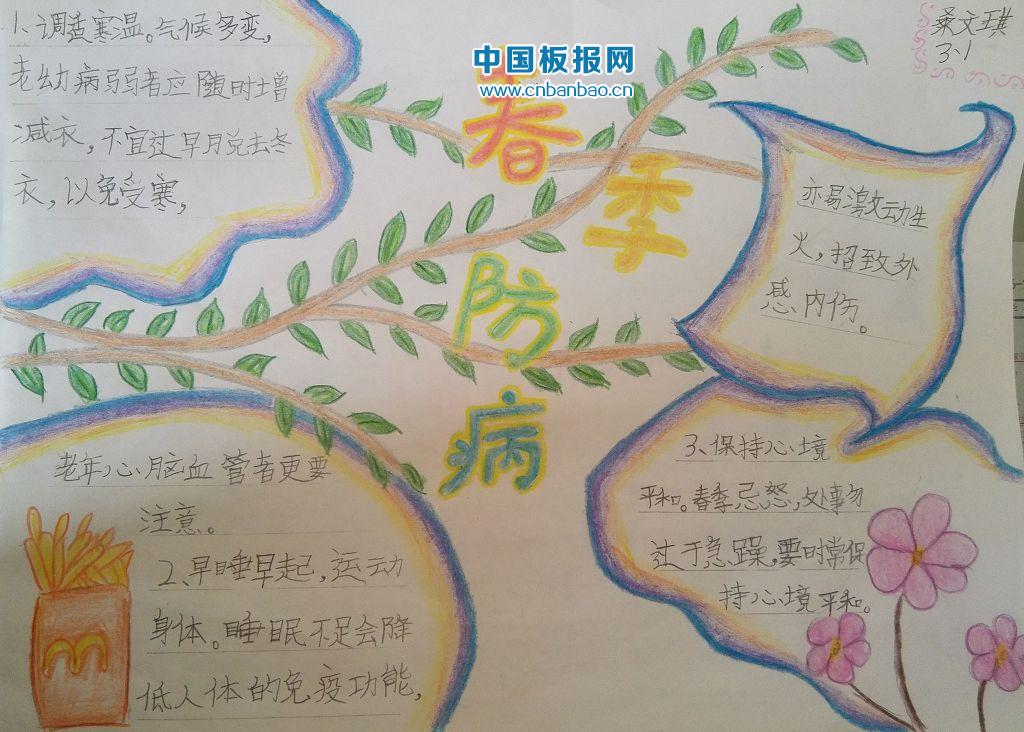 1、调适寒温。气候多变,
老幼病弱者应随时增
减衣,不宜过早脱去冬
衣,以免受寒,
中国板报网
www.cnbanbao.cn
春
季
防
病
桑文琪
3.1
亦易激动生
火,招致外
感内伤。
老年心脑血管者更要
注意。
2、早睡早起,运动
身体。睡眠不足会降
低人体的免疫功能,
3、保持心境
平和。春季忌怒,处事勿
过于急躁,要时常保
持心境平和。